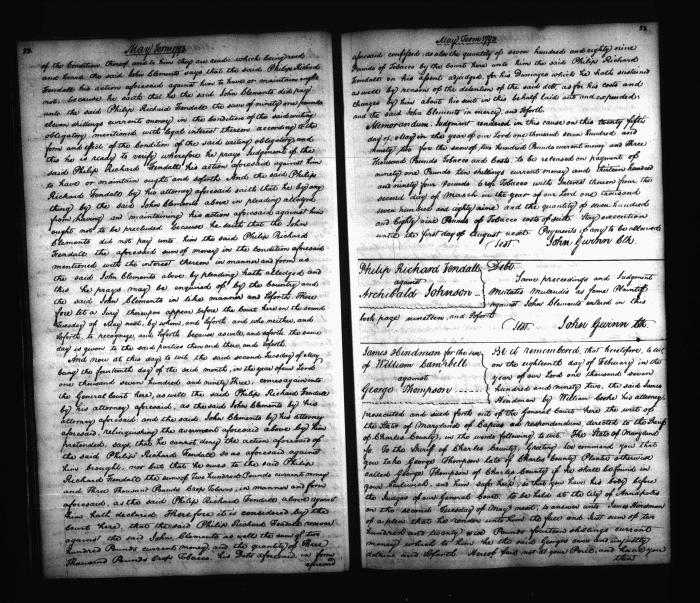 May Term 1793
of the Condition thereof and to him they are read, which being read
and heard the said John Clements says that the said Philip Richard
Fendall his action aforesaid against him to have or maintain ought
not, because he saith that he the said John Clements did pay
unto the said Philip Richard Fendall the sum of ninety one pounds
eleven shillings current money in the condition of the said writing
obligatory mentioned with legal interest thereon according to the
form and effect of the Condition of the said writing obligatory and
this he is ready to verify wherefore he prays Judgement if the
said Philip Richard Fendall his action aforesaid against him
to have or maintain ought and soforth. And the said Philip
Richard Fendall by his attorney aforesaid saith that he by any
thing by the said John Clements above in pleading alledged
from having or maintaining his action aforesaid against him
ought not to be precluded because he saith that the John
Clements did not pay unto him the said Philip Richard
Fendall the aforesaid sum of money in the Condition aforesaid
mentioned with the interest thereon in manner and form as
the said John Clements above by pleading hath alledged and
this he prays may be enquired of by the Country and
the said John Clements in like manner and soforth. There
fore let a Jury thereupon appear before the Court here on the second
Tuesday of May next, by whom, and soforth, and who neither, and
soforth, to recognize, and soforth because as well, and soforth, the same
day is given to the said parties then and there, and soforth.
And now at this day to wit the second Tuesday of May,
being the fourteenth day of the said month, in the year of our Lord
one thousand seven hundred and ninety Three, comes again into
the General Court here, as well the said Philip Richard Fendall
by his attorney aforesaid, as the said John Clements by his
attorney aforesaid and the said John Clements by his attorney
aforesaid, relinquishing the averment aforesaid above by him
pretended, says that he cannot deny the action aforesaid of
the said Philip Richard Fendall so as aforesaid against
him brought, nor but that he owes to the said Philip
Richard Fendall the sum of Two hundred Pounds current money
and Three Thousand Pounds Crop Tobacco, in manner and form
aforesaid, as the said Philip Richard Fendall above against
him hath declared. Therefore it is considered by the
Court here, that the said Philip Richard Fendall recover
against the said John Clements as well the sum of two
hundred Pounds current money and the quantity of Three
Thousand Pounds Crop Tobacco, his Debt aforesaid, in form
aforesaid
May Term 1793
aforesaid confessed; as also the quantity of seven hundred and eighty nine
Pounds of Tobacco by the Court here unto him the said Philip Richard
Fendall on his assent adjudged, for his Damages which he hath sustained
as well by reason of the detention of the said debt, as for his costs and
charges by him about his suit in this behalf laid out and expended:
and the said John Clements in mercy, and soforth.
Memorandum: Judgment rendered in this cause on this twenty fifth
day of May in the year of our Lord one thousand seven hundred and
ninety for the sum of two hundred Pounds current money and Three
Thousand Pounds Tobacco and Costs. to be released on payment of
ninety one Pounds ten shillings current money and thirteen hundred
and ninety four Pounds of Tobacco with Interest thereon from the
second day of March in the year of our Lord one thousand
seven hundred and eighty nine and the quantity of seven hundred
and Eighty nine Pounds of Tobacco costs of suit. Stay execution
until the first day of August next. Payments if any to be allowed
Test John Gwinn Clk.
Philip Richard Fendall
against
Archibald Johnson
Debt
Same proceedings and Judgment
Mutatis Mutandis as same Plaintiff
against John Clements entered in this
book page nineteen, and soforth.
Test. John Gwinn Clk.
James Hindman for the use
of William Campbell
against
George Thompson
Be it remembered, that heretofore, to wit,
on the eighteenth day of February in the
year of our Lord one thousand seven
hundred and ninety two, the said James
Hindman by William Cooke his attorney,
prosecuted and sued forth out of the General Court here the writ of
the State of Maryland of Capias ad respondendum, directed to the Sheriff
of Charles County, in the words following to wit: The State of Maryland
To the Sheriff of Charles County, Greeting We command you that
you take George Thompson late of Charles County Planter otherwise
called George Thompson of Charles County if he shall be found in
your bailiwick, and him safe keep, so that you have his body before
the Judges of our General Court, to be held at the City of Annapolis
on the second Tuesday of May next, to answer unto James Hindman
of a plea that he render unto him the full and just sum of two
hundred and twenty six Pounds fourteen shillings current
money which to him he the said George owes and unjustly
detains and soforth. Hereof fail not at your Peril, and have you
then